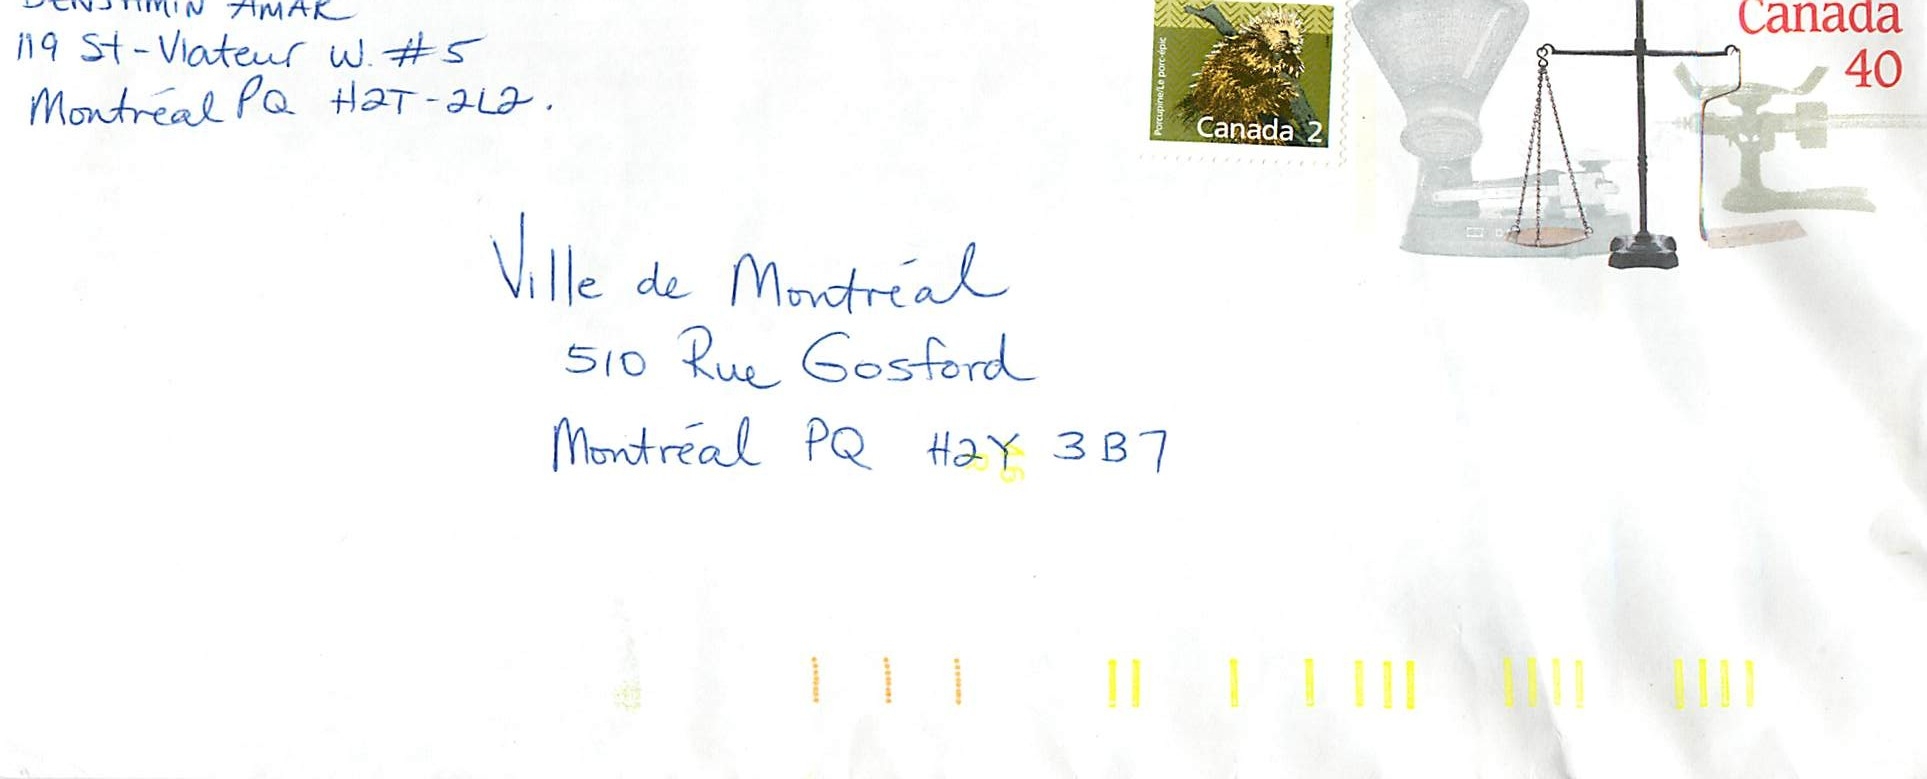 BENJAMIN AMAR
119 St-Viateur W. #5
Montréal PQ H2T-2L2.
Porcupine/Le porc-épic
Canada 2
Canada
40
Ville de Montréal
510 Rue Gosford
Montréal PQ H2Y 3B7